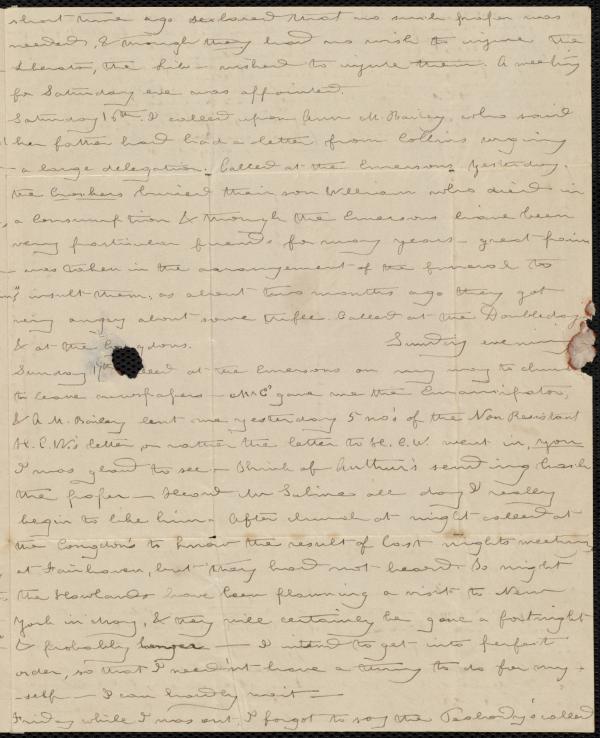 short time ago declared that no such paper was
needed, & though they had no wish to injure the
Liberator, the Lib - wished to injure them. A meeting
for Saturday eve was appointed.
Saturday 18th. I called upon Ann M. Bailey, who said
her father had had a letter from Collins urging
- a large delegation. Called at the Emersons. Yesterday.
the Crockers buried their son William who died in
a consumption & though the Emersons have been
very particular friends for many years - great pain
- was taken in the arrangement of the funeral to
insult them, as about two months ago they got
very angry about some trifle. Called at the Doubleday
& at the Congdons. Sunday evening
Sunday 19th called at the Emersons on my way to church
to leave newspapers - Mrs E. gave me the Emancipator,
& A. M. Bailey lent me yesterday 5 no's of the Non Resistant
H. C. W's letter, or rather the letter to H. C. W. went in, you
I was glad to see - Think of Arthur's sending back
the paper - Heard Mr Sabine all day I really
begin to like him - After church at night called at
the Congdon's to know the result of last nights meeting
at Fairhaven, but they had not heard. To night
the Howlands have been planning a visit to New
York in May, & they will certainly be gone a fortnight
& probably longer - I intend to get into perfect
order, so that I need'nt have a thing to do for my -
-self - I can hardly wait -
Friday while I was out I forgot to say the Peabody's called